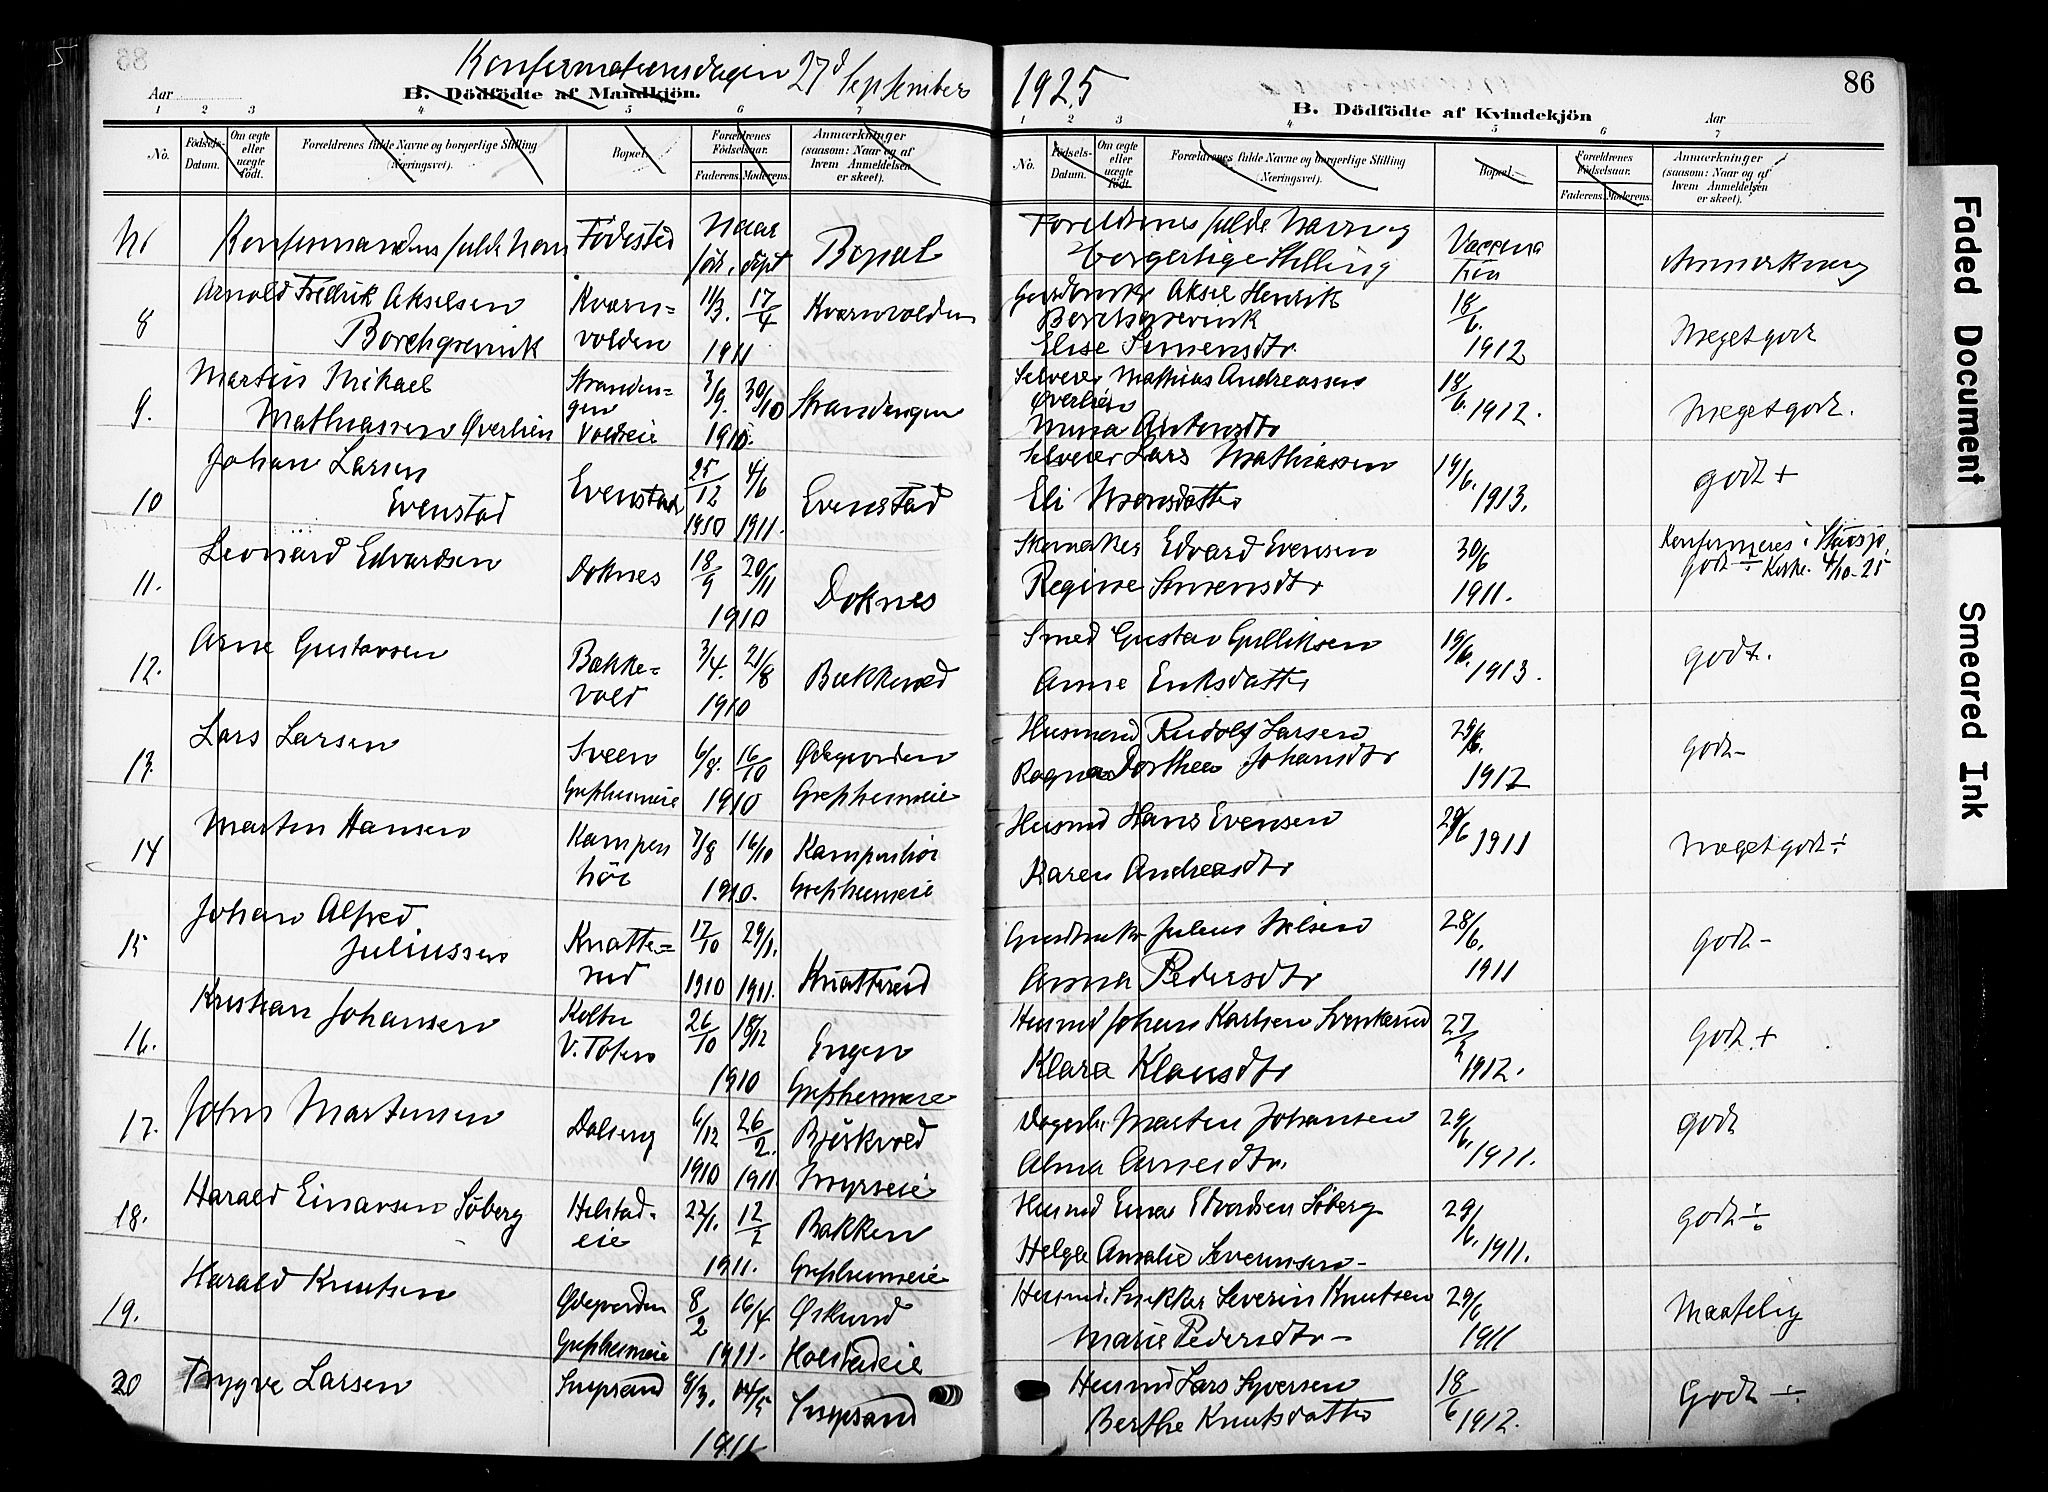 Konfirmationsdagen 27d September 1925
86
Aar
B. Dödfödte af Mandkjön.
1 2 3 4 5 6 7
No.
Födsels-Datum.
Om ægte eller uægte födt.
Forældrenes fulde Navne og borgerlige Stilling (Næringsvei).
Bopæl.
Forældrenes Födselsaar.
Faderens. Moderens.
Anmærkninger (saasom: Naar og af hvem Anmeldelsen er skeet).
B. Dödfödte af Kvindekjön
Aar
1 2 3 4 5 6 7
No.
Födsels-Datum.
Om ægte eller uægte födt.
Forældrenes fulde Navne og borgerlige Stilling (Næringsvei).
Bopæl.
Forældrenes Födselsaar.
Faderens. Moderens.
Anmærkninger (saasom: Naar og af hvem Anmeldelsen er skeet).
Nr Konfirmandens fulde Navn Födested Naar föd. döpt Bopæl
Foreldrenes fulde Navn og borgerlige Stilling Vaccina tion Anmerkning
8 Arnold Fredrik Akselsen Borchgrevink Kværn-volden 11/3. 17/4 1911 Kværnvolden
Gaardbruker Aksel Henrik Borchgrevink
Elise Simensdtr. 18/6. 1912 Megetgodt
9. Martin Mikael Mathiassen Øverlien Stranden-gen Voldseie 3/9. 30/10 1910. Strandengen
Selveier Mathias Andreassen Øverlien
Mina Antonsdtr 18/6. 1912. Megetgodt.
10 Johan Larsen Evenstad Evenstad 25/12 1910 4/6 1911. Evenstad
Selveier Lars Mathiassen
Eli Monsdatter 19/6. 1913. godt +
11. Leonard Edvardsen Doknes 18/9 20/11 1910 Doknes
Skomaker Edvard Evensen
Regine Simensdtr 30/6 1911. godt ÷ Konfirmeres i Stavsjö Kirke. 4/10-25
12. Arne Gustavsen Bakke-vold 3/4. 21/8 1910 Bakkevold
Smed Gustav Gulliksen
Anne Eriksdatter 19/6. 1913. godt.
13. Lars Larsen Sveen Grefsheimeie 6/8. 16/10 1910 Ødegaarden Grefsheimeie
Husmand Rudolf Larsen
Ragna Dorthea Johansdtr 29/6. 1912 godt-
14 Martin Hansen Kampen hör 7/8 16/10 1910. Kampenhör Grefsheimeie
Husmd Hans Evensen
Karen Andreasdtr 29/6 1911 Megetgodt ÷
15 Johan Alfred Juliussen Knatte-rud 17/10 1910 29/1. 1911. Knatterud
Gaardbruker Julius Nilsen
Anna Pedersdtr 28/6. 1911 godt-
16. Kristian Johansen Kolbu V. Toten 26/10 18/12 1910 Engen Grefsheimeie
Husmd Johan Karlsen Svenkerud
Klara Klausdtr 27/2 1912. Godt. +
17. John Martinsen Dalseng 6/12 1910 26/2. 1911 Björkvold Myrseie
Dagarb. Martin Johansen
Alma Arnesdtr. 29/6. 1911. godt
18. Harald Einarsen Söberg Helstad-eie 22/1. 12/2 1911. Bakken Grefsheimeie
Husmd Einar Edvardsen Söberg
Helga Amalie Severinsen- 29/6. 1911. godt ÷
19. Harald Knutsen Ødegaarden Grefsheimeie 8/2 16/4 1911. Holstadeie
Husmd. Snekker Severin Knutsen
Marie Pedersdtr- 29/6 1911 Maatelig
20 Trygve Larsen 8/3. 14/5 1911
Husmd Lars Syversen
Berthe Knutsdatter 18/6 1912. Godt ÷
Faded Document
Smeared Ink